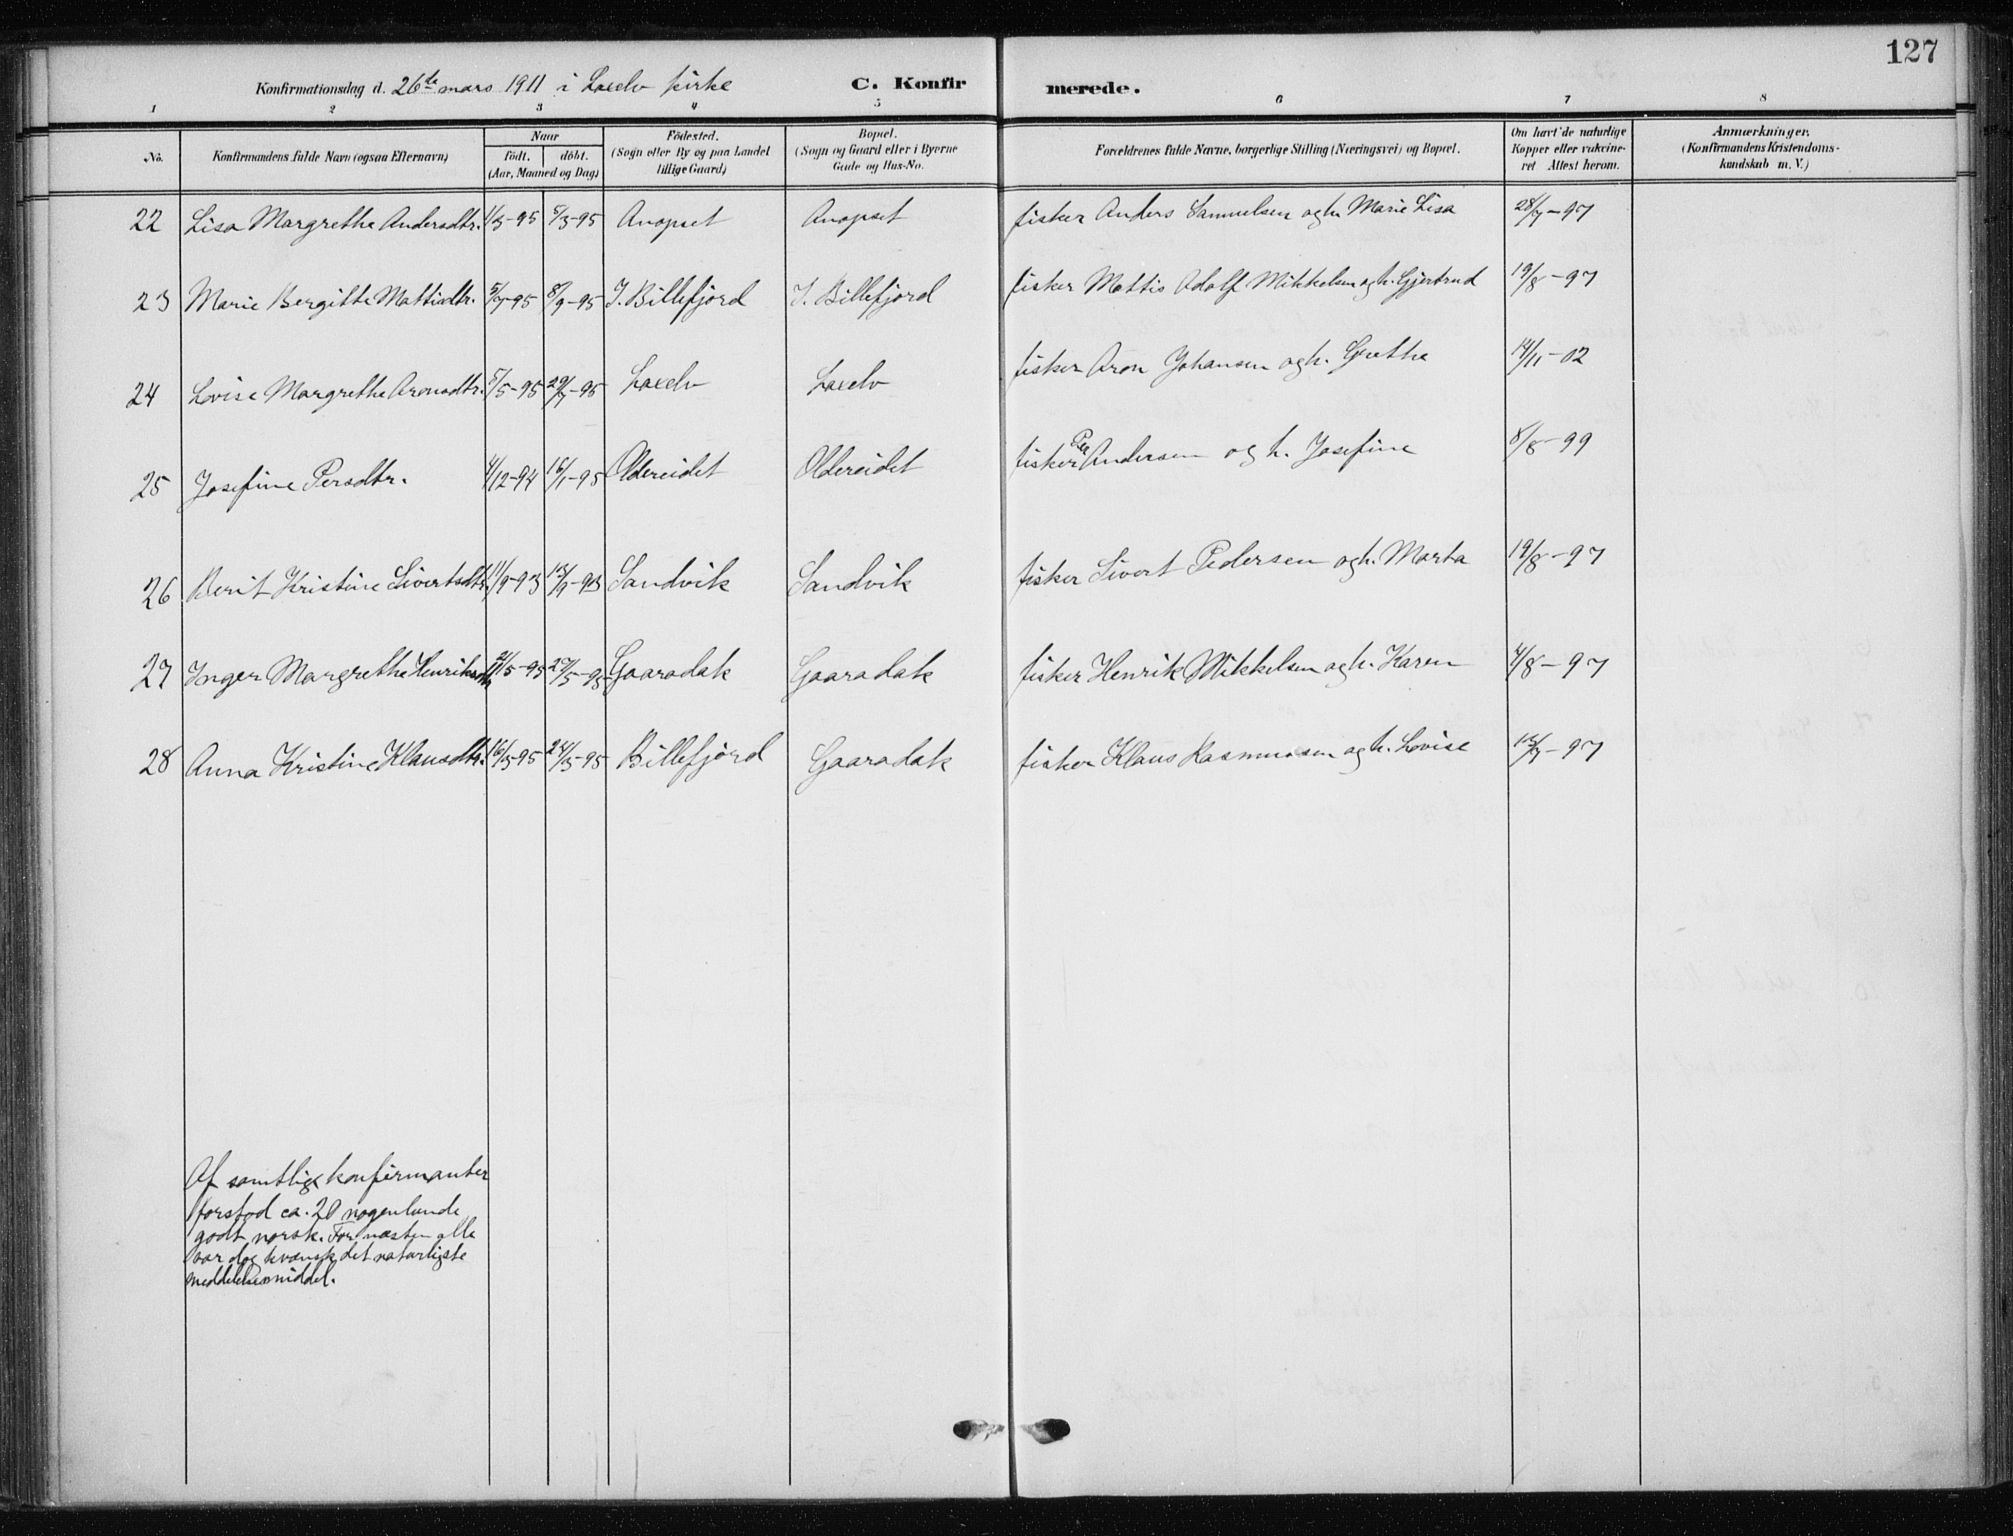 127
Konfirmationsdag d. 26de mars 1911 i Laxelv kirke C. Konfirmerede.
1 2 3 4 5 6 7 8
No. Konfirmandens fulde Navn (ogsaa Efternavn) Naar födt. döbt. (Aar, Maaned og Dag) Födested. (Sogn eller By og paa Landet tillige Gaard) Bopæl. (Sogn og Gaard eller i Byerne Gade og Hus-No. Forældrenes fulde Navne, borgerlige Stilling (Næringsvei) og Bopæl. Om havt de naturlige Kopper eller vakcineret Attest herom. Anmærkninger. (Konfirmandens Kristendomskundskab m. V.)
22 Lisa Margrethe Andersdtr. 1/3-95 5/3-95 Anopset Anopset fisker Anders Samuelsen og h. Marie Lisa 28/7-97
23 Marie Bergitte Mattisdtr. 5/7-95 8/9-95 I. Billefjord I. Billefjord fisker Mattis Adolf Mikkelsen og h. Gjertrud 19/8-97
24 Lovise Margrethe Aronsdtr. 5/5-95 29/7-95 Laxelv Laxelv fisker Aron Johansen og h. Grethe 14/11-02
25 Josefine Persdtr. 4/12-94 16/1-95 Oldereidet Oldereidet fisker Per Andersen og h. Josefine 8/8-99
26 Berit Kristine Sivertsdtr. 11/9-93 13/9-93 Sandvik Sandvik fisker Sivert Pedersen og h. Marta 19/8-97
27 Inger Margrethe Henriksdtr. 21/5-95 27/5-95 Gaaradak Gaaradak fisker Henrik Mikkelsen og h. Karen 4/8-97
28 Anna Kristine Klausdtr. 16/3-95 24/3-95 Billefjord Gaaradak fisker Klaus Rasmussen og h. Lovise 12/7-97
Af samtlige konfirmanter
forstod ca. 20 nogenlunde
godt norsk. For næsten alle
var dog kvænsk det naturligste
meddelelsesmiddel.